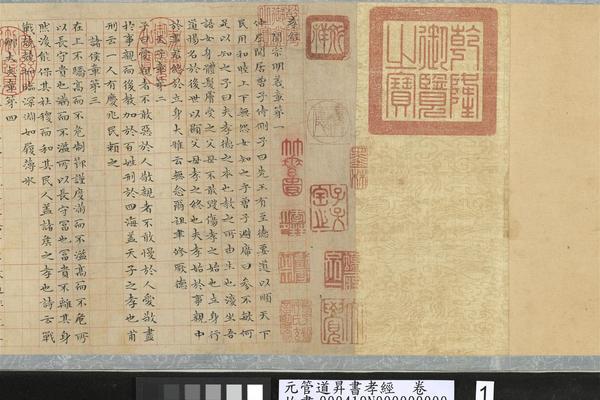 乾隆
御覽
之寶
孝經
開宗明義章第一
仲居閒居曾子侍側子曰先王有至德要道以順天下
民用和睦上下無怨女知之乎曾子避席曰參不敏何
足以知之子曰夫孝德之本也教之所由生也復坐吾
語女身體髮膚受之父母不敢毀傷孝之始也立身行
道揚名於後世以顯父母孝之終也夫孝始於事親中
於事君終於立身大雅云無念爾祖聿修厥德
天子章第二
子曰愛親者不敢惡於人敬親者不敢慢於人愛敬盡
於事親而後教加於百姓刑於四海蓋天子之孝也甫
刑云一人有慶兆民賴之
諸侯章第三
在上不驕高而不危制節謹度滿而不溢高而不危所
以長守貴也滿而不溢所以長守富也富貴不離其身
然後能保其社稷而和其民人蓋諸侯之孝也詩云戰
戰兢兢如臨深淵如履薄冰
卿大夫章第四
元管道昇書孝經 卷
1